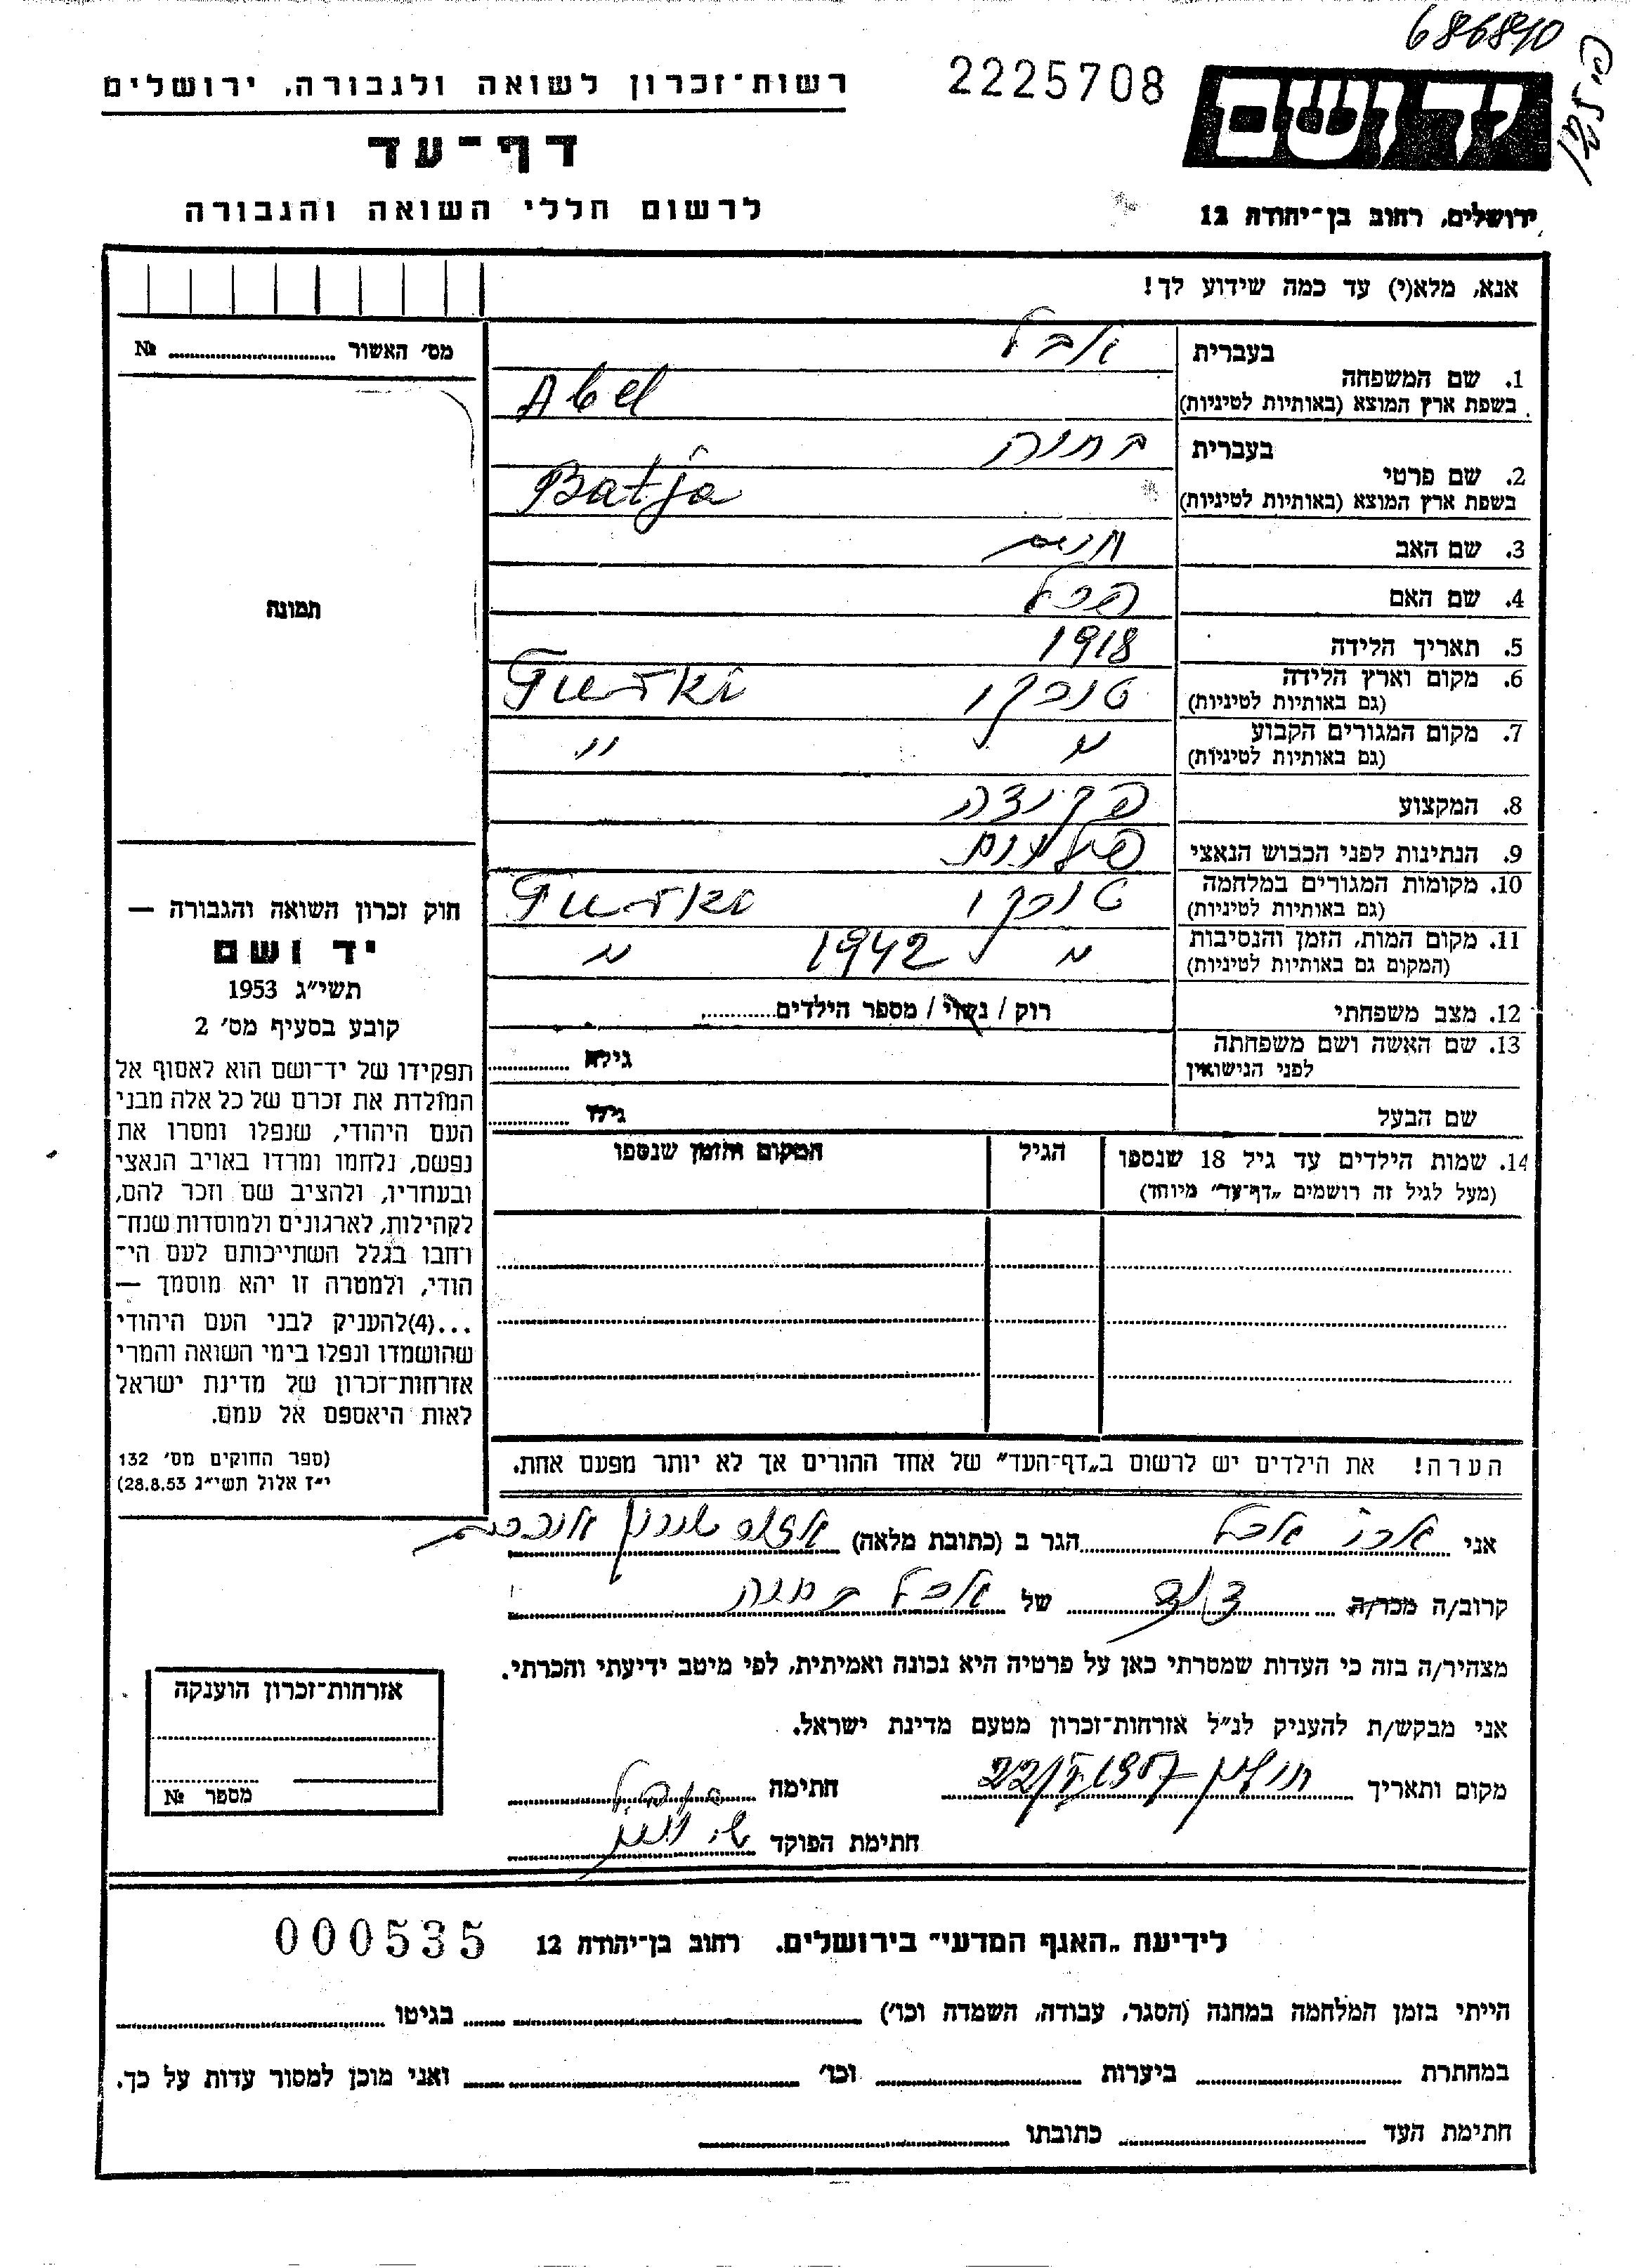 686840
רשות-זכרון לשואה ולגבורה, ירושלים
2225708
יד ושם
דף-עד
לרשום חללי השואה והגבורה
ירושלים, רחוב בן-יהודה 12
אנא, מלא(י) עד כמה שידוע לך!
מס׳ האשור № 
בעברית אבל
1. שם המשפחה
בשפת ארץ המוצא (באותיות לטיניות) Abel
בעברית בתיה
2. שם פרטי
בשפת ארץ המוצא (באותיות לטיניות) Batja
3. שם האב חיים
4. שם האם
5. תאריך הלידה 1918
6. מקום וארץ הלידה
(גם באותיות לטיניות) טורקו Turka
7. מקום המגורים הקבוע
(גם באותיות לטיניות) " "
8. המקצוע פקידה
9. הנתינות לפני הכבוש הנאצי
10. מקומות המגורים במלחמה
(גם באותיות לטיניות) טורקו Turka
11. מקום המות, הזמן והנסיבות
(המקום גם באותיות לטיניות) " 1942 "
12. מצב משפחתי רוק / נשוי / מספר הילדים
13. שם האשה ושם משפחתה
לפני הנישואין גילא
שם הבעל גילו
14. שמות הילדים עד גיל 18 שנספו
(מעל לגיל זה רושמים „דף-עד" מיוחד)
הגיל
המקום והזמן שנספו
הערה! את הילדים יש לרשום ב„דף-העד" של אחד ההורים אך לא יותר מפעם אחת.
תמונה
חוק זכרון השואה והגבורה —
יד ושם
תשי״ג 1953
קובע בסעיף מס׳ 2
תפקידו של יד-ושם הוא לאסוף אל
המולדת את זכרם של כל אלה מבני
העם היהודי, שנפלו ומסרו את
נפשם, נלחמו ומרדו באויב הנאצי
ובעוזריו, ולהציב שם וזכר להם,
לקהילות, לארגונים ולמוסדות שנח-
רחבו בגלל השתייכותם לעם הי-
הודי, ולמטרה זו יהא מוסמך —
...(4)להעניק לבני העם היהודי
שהושמדו ונפלו בימי השואה והמרי
אזרחות-זכרון של מדינת ישראל
לאות היאספם אל עמם.
(ספר החוקים מס׳ 132
י״ז אלול תשי״ג 28.8.53)
אני אבל הגר ב (כתובת מלאה)
קרוב/ה מכר/ה דוד של אבל בתיה
מצהיר/ה בזה כי העדות שמסרתי כאן על פרטיה היא נכונה ואמיתית, לפי מיטב ידיעתי והכרתי.
אני מבקש/ת להעניק לנ״ל אזרחות-זכרון מטעם מדינת ישראל.
מקום ותאריך חתימה
חתימת הפוקד
אזרחות-זכרון הוענקה
מספר №
לידיעת „האגף המדעי" בירושלים. רחוב בן-יהודה 12 000535
הייתי בזמן המלחמה במחנה (הסגר, עבודה, השמדה וכו׳) בגיטו
במחתרת ביערות וכו׳ ואני מוכן למסור עדות על כך.
חתימת העד כתובתו